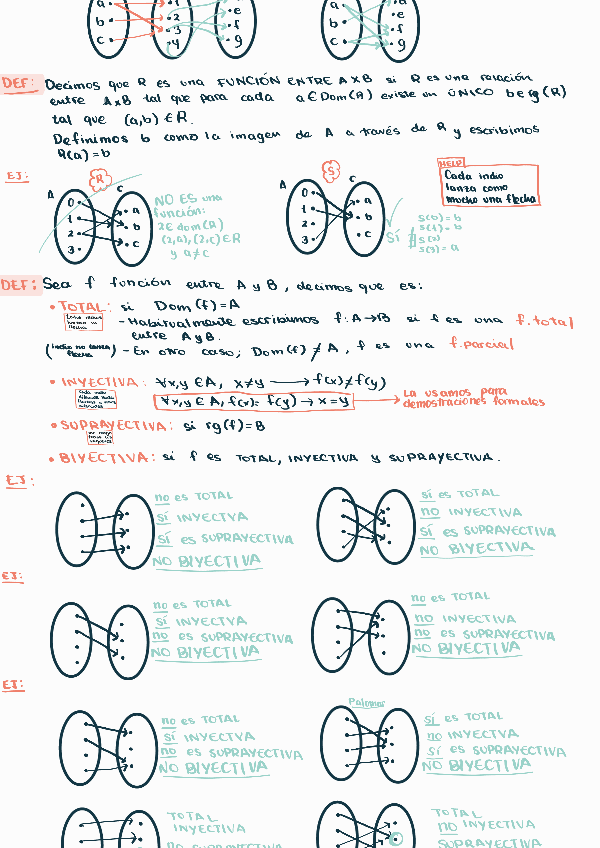 a b c 1 2 3 4 e f g
a b c a e f g
DEF: Decimos que R es una FUNCIÓN ENTRE A×B si R es una relación
entre A×B tal que para cada a∈Dom(A) existe un ÚNICO b∈rg(R)
tal que (a,b)∈R.
Definimos b como la imagen de A a través de R y escribimos
R(a)=b
EJ:
R
A C
0 1 2 3
a b c
NO ES una
función:
2∈dom(R)
(2,a),(2,c)∈R
y a≠c
S
A C
0 1 2 3
a b c
Sí
S(0)=b
S(1)=b
S(3)=a
HELP
Cada indio
lanza como
mucho una flecha
DEF: Sea f función entre A y B, decimos que es:
• TOTAL: si Dom(f)=A
- Habitualmente escribimos f:A→B si f es una f.total
entre A y B.
- En otro caso; Dom(f)≠A, f es una f.parcial
• INYECTIVA: ∀x,y∈A, x≠y → f(x)≠f(y)
∀x,y∈A, f(x)=f(y) → x=y
La usamos para
demostraciones formales
• SUPRAYECTIVA: si rg(f)=B
• BIYECTIVA: si f es TOTAL, INYECTIVA y SUPRAYECTIVA.
EJ:
no es TOTAL
SÍ INYECTIVA
SÍ es SUPRAYECTIVA
NO BIYECTIVA
sí es TOTAL
no INYECTIVA
SÍ es SUPRAYECTIVA
NO BIYECTIVA
EJ:
no es TOTAL
sí INYECTIVA
no es SUPRAYECTIVA
NO BIYECTIVA
no es TOTAL
no INYECTIVA
no es SUPRAYECTIVA
NO BIYECTIVA
EJ:
no es TOTAL
sí INYECTIVA
no es SUPRAYECTIVA
NO BIYECTIVA
Palomar
sí es TOTAL
no INYECTIVA
sí es SUPRAYECTIVA
NO BIYECTIVA
TOTAL
INYECTIVA
no SUPRAYECTIVA
TOTAL
no INYECTIVA
SUPRAYECTIVA